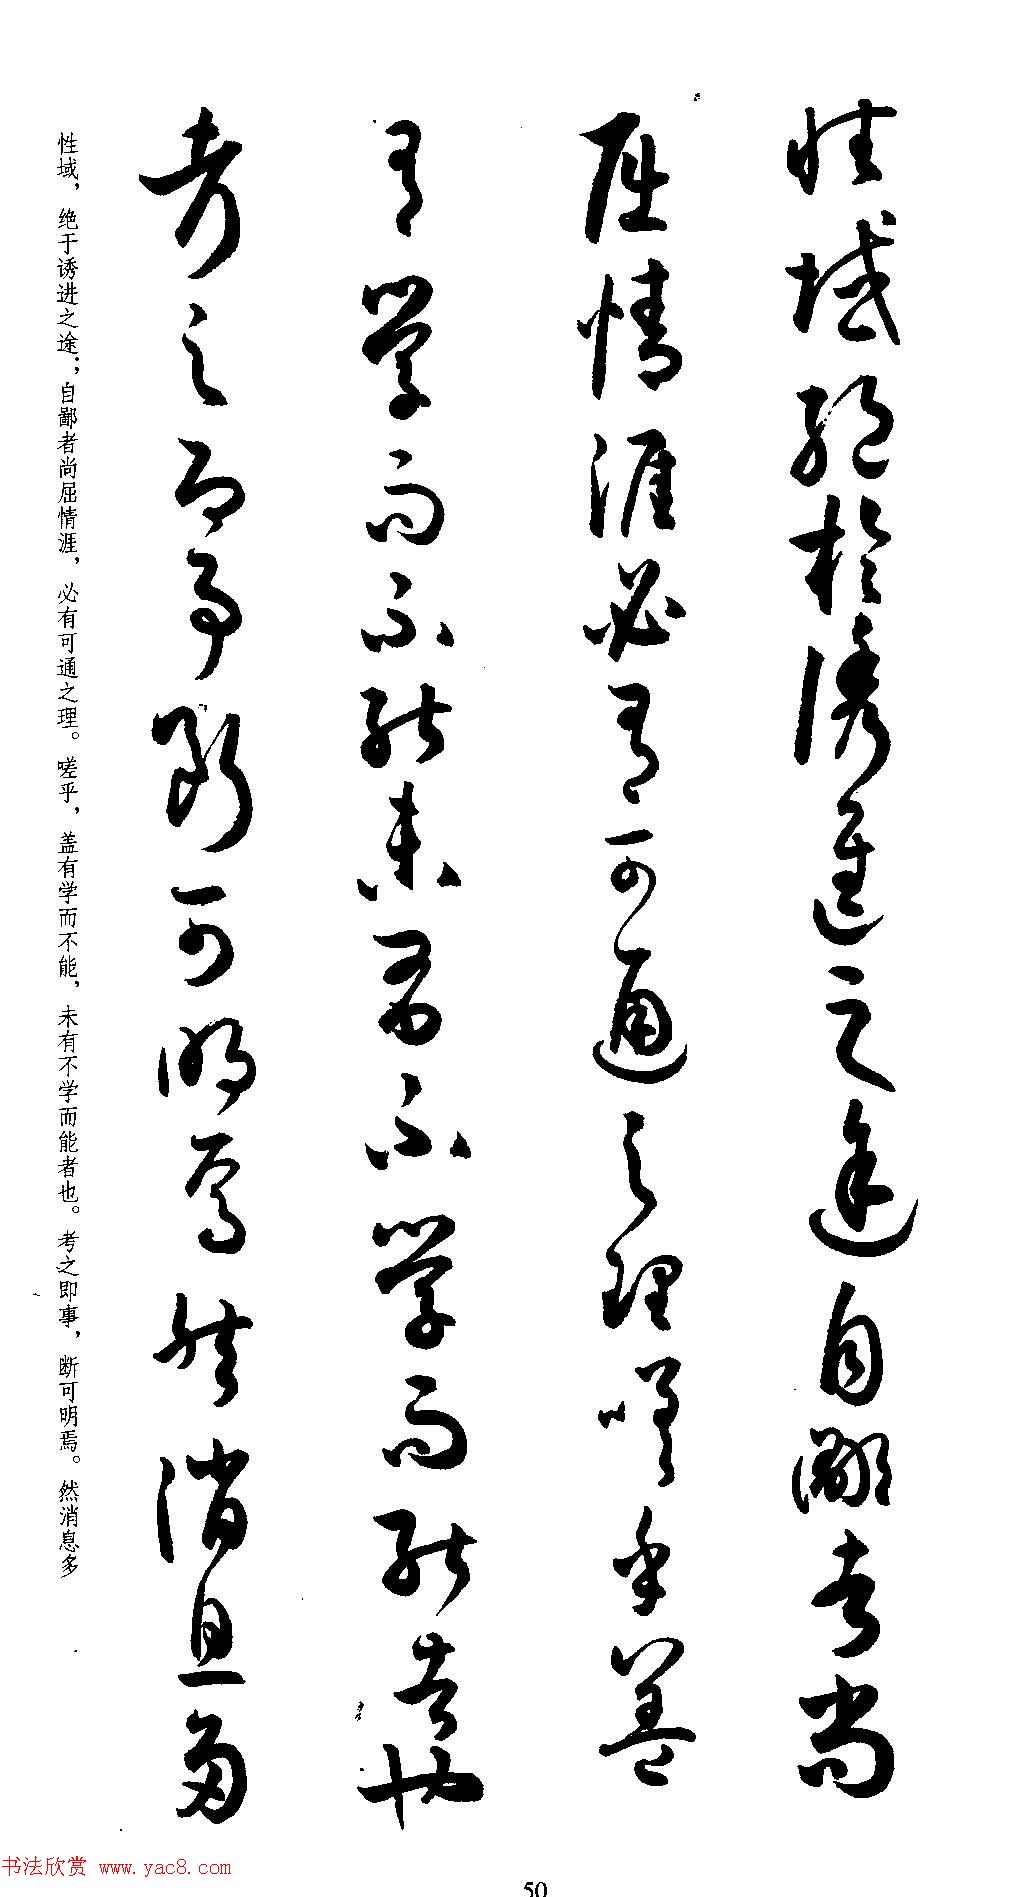 性域絕於誘進之途自鄙者尚
屈情涯必有可通之理嗟乎蓋
有學而不能未有不學而能者也
考之即事斷可明焉然消息多
性域，绝于诱进之途；自鄙者尚屈情涯，必有可通之理。嗟乎，盖有学而不能，未有不学而能者也。考之即事，断可明焉。然消息多
书法欣赏 www.yac8.com
50